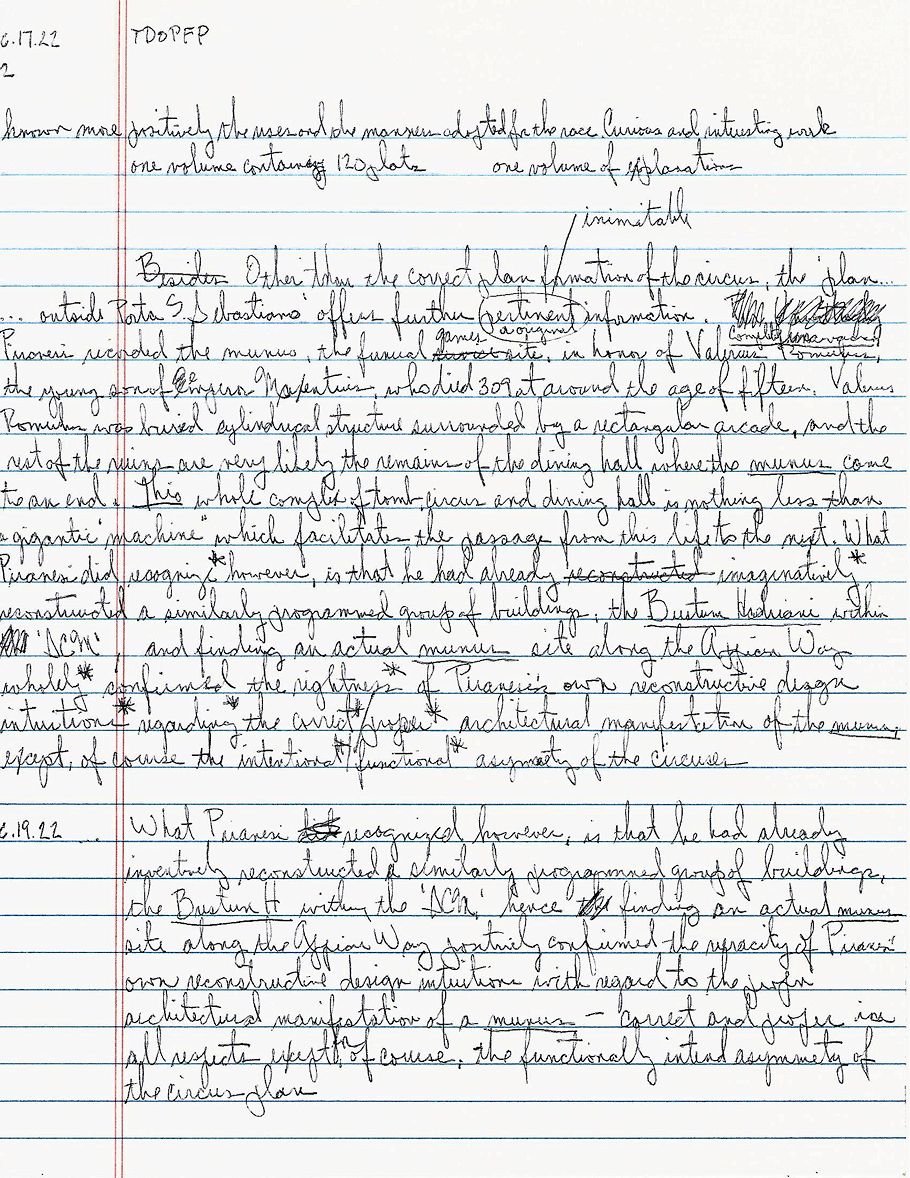 6.17.22 TDOPFP
2
known more positively the uses and the manner adopted for the race Curious and interesting work
one volume containing 120 plats one volume of explanations
inimitable
Besides Other than the correct plan formation of the circus, the 'plan...
... outside Porta S. Sebastiano' offers further pertinent information.
a original
games Completely unawares
Piranesi recorded the munus, the funeral site, in honor of Valerius Romulus,
the young son of Emperor Maxentius, who died 309 at around the age of fifteen. Valerius
Romulus was buried cylindrical structure surrounded by a rectangular arcade, and the
rest of the ruins are very likely the remains of the dining hall where the munus came
to an end. This whole complex of tomb, circus and dining hall is nothing less than
a gigantic "machine" which facilitates the passage from this life to the next. What
Piranesi did recogniz* however, is that he had already reconstructed imaginatively*
reconstructed a similarly programmed group of buildings, the Bustum Hadriani within
'ICM' and finding an actual munus site along the Appian Way
wholely* confirmed the rightness* of Piranesi's own reconstructive design
intuitions* regarding* the correct*/proper* architectural manifestation of the munus,
except, of course the intentional*/functional* asymmetry of the circuses
6.19.22 ... What Piranesi did recognized however, is that he had already
inventively reconstructed a similarly programmed group of buildings,
the Bustum H within the 'ICM,' hence finding an actual munus
site along the Appian Way positively confirmed the veracity of Piranesi's
own reconstructive design intuitions with regard to the proper
architectural manifestation of a munus – correct and proper in
all respects except for, of course, the functionally intend asymmetry of
the circus plan